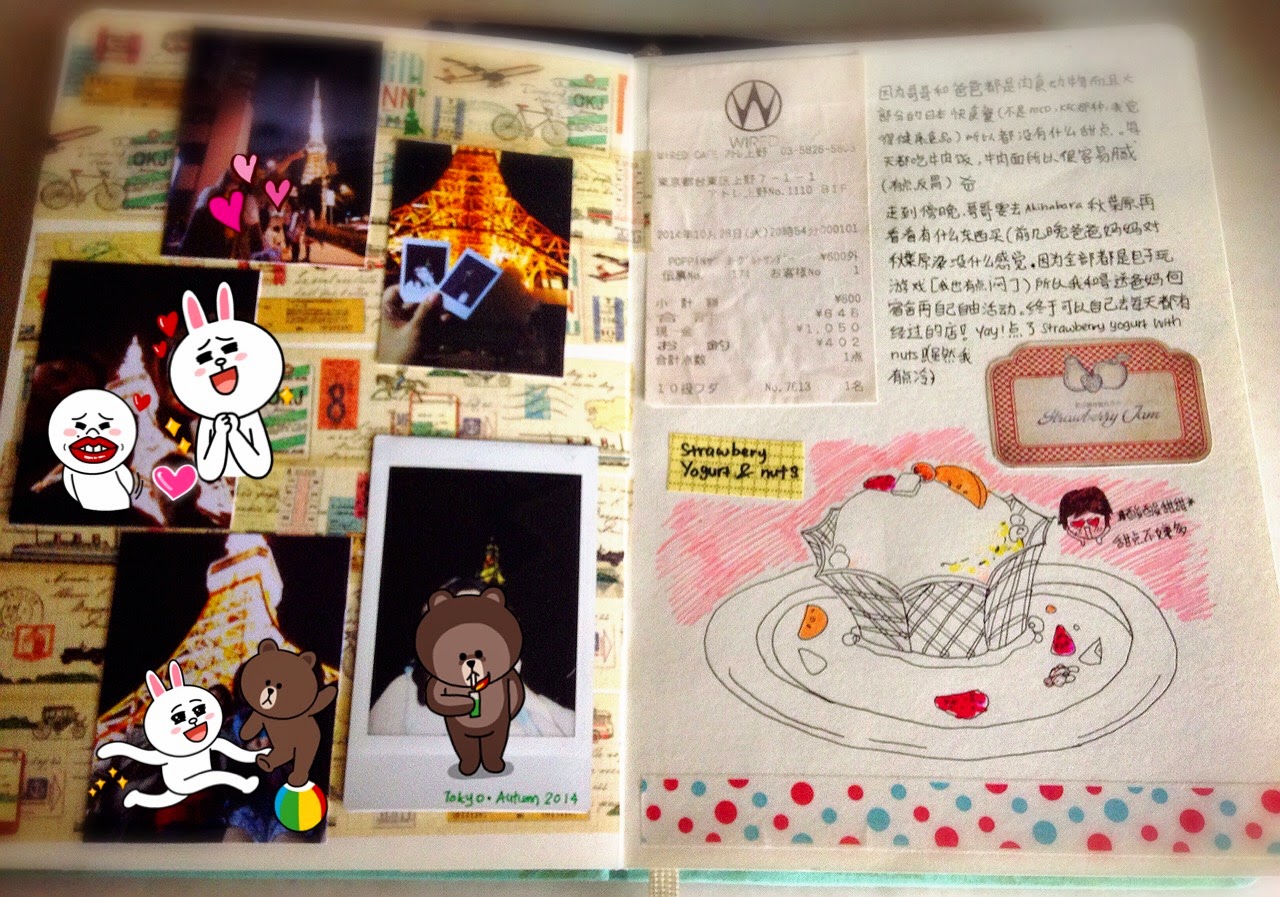 Tokyo • Autumn 2014
W
WIRED
WIRED CAFE アトレ上野 03-5826-58
東京都台東区上野7-1-1
アトレ上野No.1110 B1F
2014年10月28日(火)20時54分000101
¥600外
伝票No. お客様No 1
小計額 ¥600
合計 ¥648
現金 ¥1,050
お釣 ¥402
合計点数 1点
No.7613 1名
因为哥哥和爸爸都是肉食动物而且大
部分的日本快食餐(不是McD, KFC那种,
健康食品)所以都没有什么甜点。每
天都吃牛肉饭,牛肉面所以很容易腻
(有点反胃)
走到傍晚,哥哥要去Akihabara秋叶原再
看看有什么东西买(前几晚爸爸妈妈对
秋叶原没什么感觉。因为全部都是电子玩
游戏[我也有点闷了)所以我和哥送爸妈回
宿舍再自己自由活动。终于可以自己去每天都有
经过的店!! Yay!点了Strawberry yogurt with
nuts(虽然我
有点冷)
Strawberry Jam
Strawbery
Yogurt & nuts
*酸酸甜甜*
甜点不嫌多
OKJ
OKJ
8